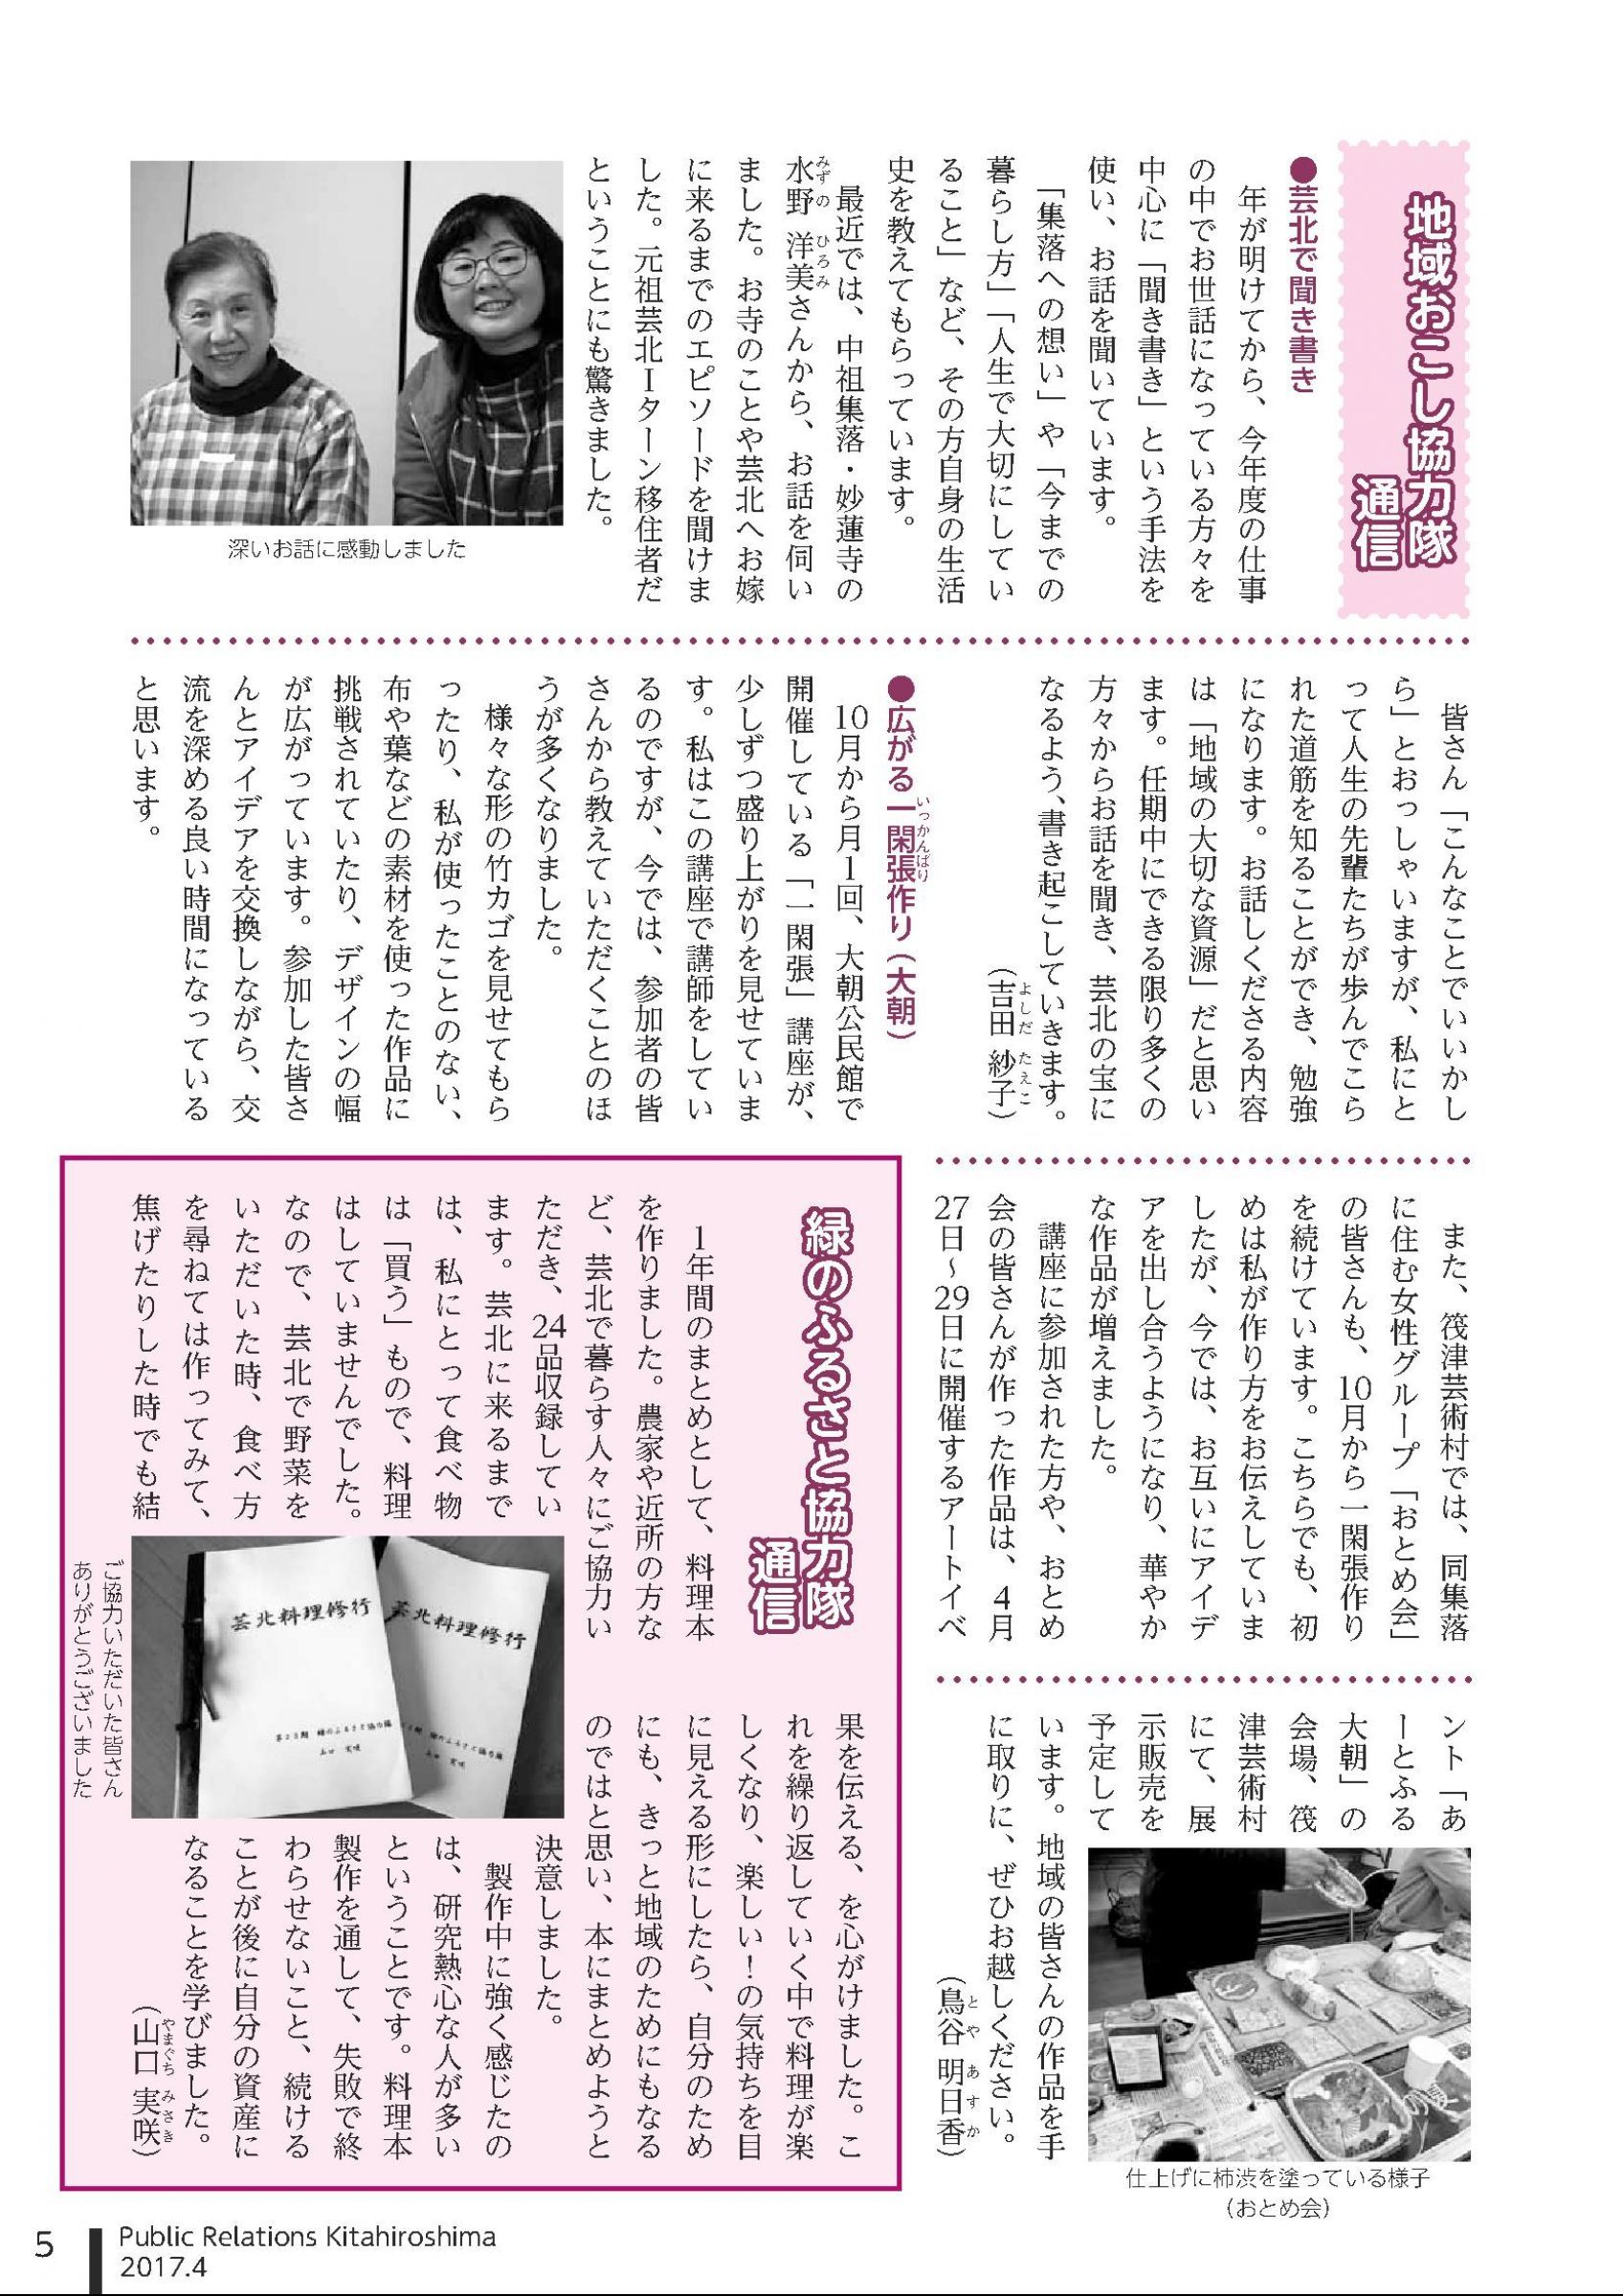 地域おこし協力隊
通信
●芸北で聞き書き
　年が明けてから、今年度の仕事
の中でお世話になっている方々を
中心に「聞き書き」という手法を
使い、お話を聞いています。
　「集落への想い」や「今までの
暮らし方」「人生で大切にしてい
ること」など、その方自身の生活
史を教えてもらっています。
　最近では、中祖集落・妙蓮寺の
水野 洋美さんから、お話を伺い
みずの ひろみ
ました。お寺のことや芸北へお嫁
に来るまでのエピソードを聞けま
した。元祖芸北Ｉターン移住者だ
ということにも驚きました。
深いお話に感動しました
　皆さん「こんなことでいいかし
ら」とおっしゃいますが、私にと
って人生の先輩たちが歩んでこら
れた道筋を知ることができ、勉強
になります。お話しくださる内容
は「地域の大切な資源」だと思い
ます。任期中にできる限り多くの
方々からお話を聞き、芸北の宝に
なるよう、書き起こしていきます。
（吉田 紗子）
よしだ たえこ
●広がる一閑張作り（大朝）
いっかんばり
　10月から月１回、大朝公民館で
開催している「一閑張」講座が、
少しずつ盛り上がりを見せていま
す。私はこの講座で講師をしてい
るのですが、今では、参加者の皆
さんから教えていただくことのほ
うが多くなりました。
　様々な形の竹カゴを見せてもら
ったり、私が使ったことのない、
布や葉などの素材を使った作品に
挑戦されていたり、デザインの幅
が広がっています。参加した皆さ
んとアイデアを交換しながら、交
流を深める良い時間になっている
と思います。
　また、筏津芸術村では、同集落
に住む女性グループ「おとめ会」
の皆さんも、10月から一閑張作り
を続けています。こちらでも、初
めは私が作り方をお伝えしていま
したが、今では、お互いにアイデ
アを出し合うようになり、華やか
な作品が増えました。
　講座に参加された方や、おとめ
会の皆さんが作った作品は、４月
27日～29日に開催するアートイベ
ント「あ
ーとふる
大朝」の
会場、筏
津芸術村
にて、展
示販売を
予定して
います。地域の皆さんの作品を手
に取りに、ぜひお越しください。
（鳥谷 明日香）
とや あすか
仕上げに柿渋を塗っている様子
（おとめ会）
緑のふるさと協力隊
通信
　１年間のまとめとして、料理本
を作りました。農家や近所の方な
ど、芸北で暮らす人々にご協力い
ただき、24品収録してい
ます。芸北に来るまで
は、私にとって食べ物
は「買う」もので、料理
はしていませんでした。
なので、芸北で野菜を
いただいた時、食べ方
を尋ねては作ってみて、
焦げたりした時でも結
果を伝える、を心がけました。こ
れを繰り返していく中で料理が楽
しくなり、楽しい！の気持ちを目
に見える形にしたら、自分のため
にも、きっと地域のためにもなる
のではと思い、本にまとめようと
決意しました。
　製作中に強く感じたの
は、研究熱心な人が多い
ということです。料理本
製作を通して、失敗で終
わらせないこと、続ける
ことが後に自分の資産に
なることを学びました。
（山口 実咲）
やまぐち みさき
芸北料理修行
第23期 緑のふるさと協力隊
山口 実咲
芸北料理修行
緑のふるさと協力隊
山口 実咲
ご協力いただいた皆さん
ありがとうございました
5
Public Relations Kitahiroshima
2017.4